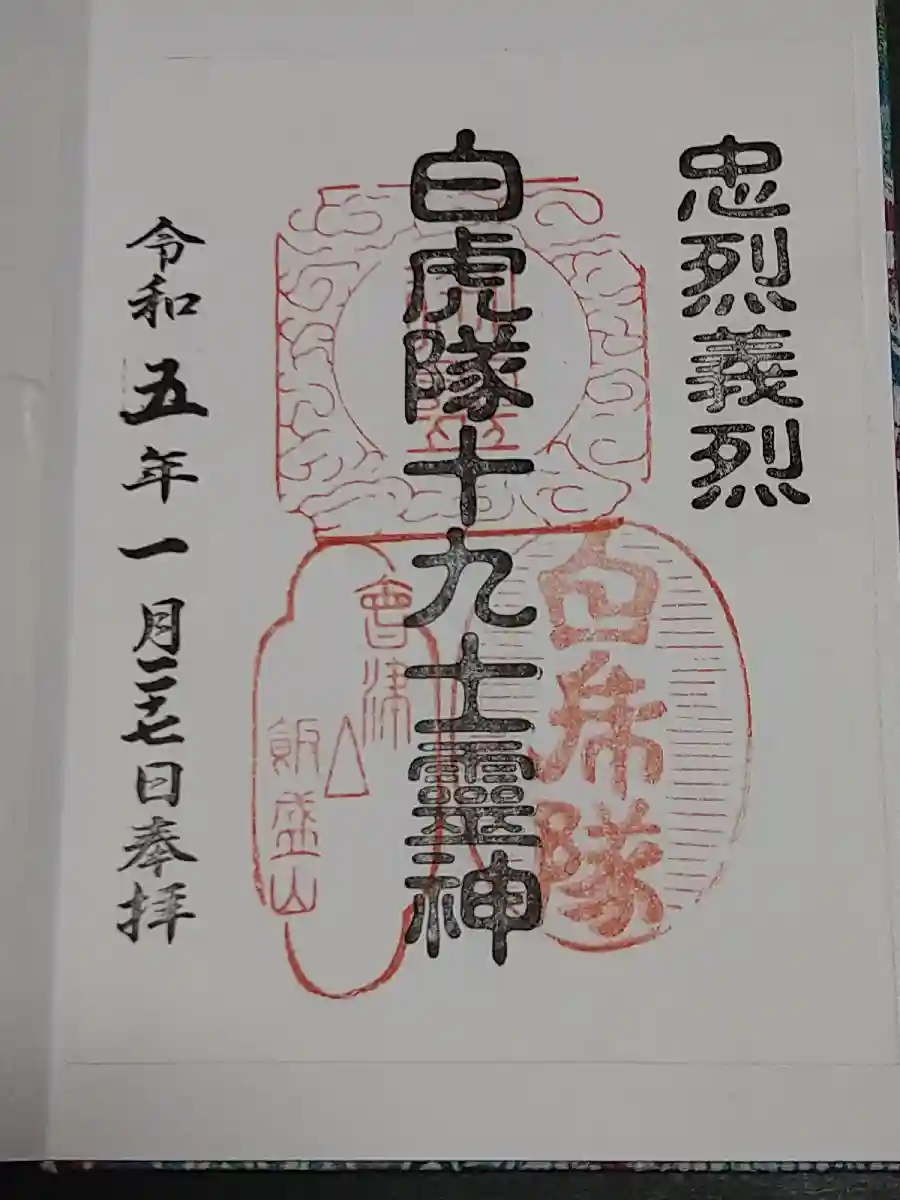 忠烈義烈
白虎隊十九士靈神
白虎隊
會津
飯盛山
令和五年一月二十七日奉拝